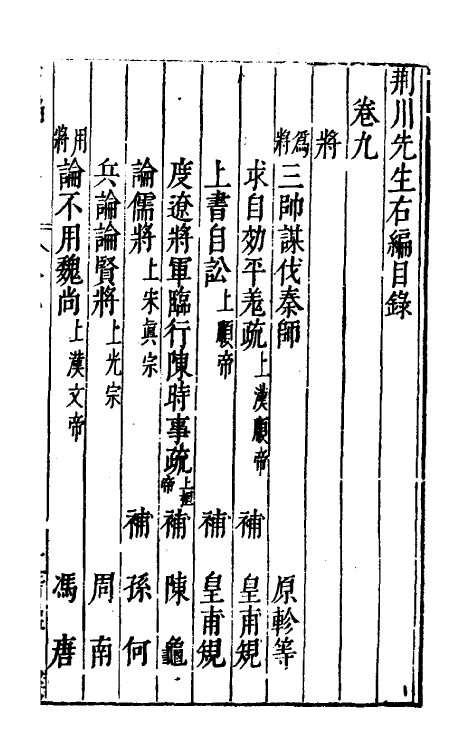 荆川先生右編目錄
卷九
將
爲將 三帥謀伐秦師 原軫等
求自効平羌疏 上漢順帝 補 皇甫䂓
上書自訟 上順帝 補 皇甫䂓
度遼將軍臨行陳時事疏 上桓帝 補 陳龜
論儒將 上宋眞宗 補 孫何
兵論論賢將 上光宗 周南
用將 論不用魏尚 上漢文帝 馮唐